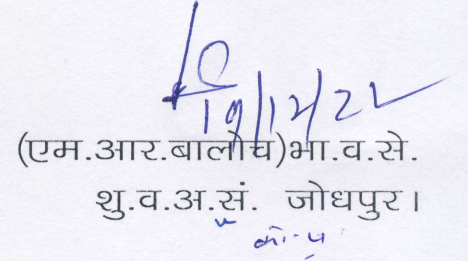 19/12/22
(एम.आर.बालोच)भा.व.से.
शु.व.अ.सं. जोधपुर।